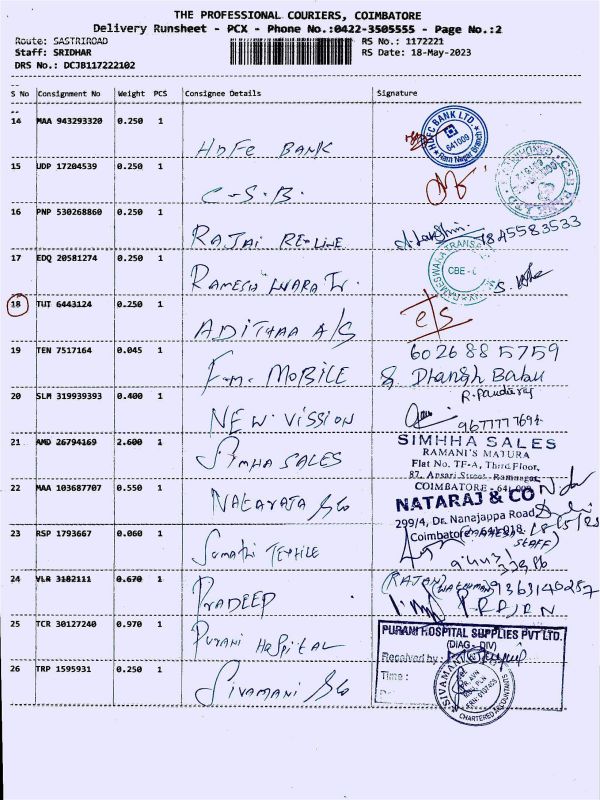 THE PROFESSIONAL COURIERS, COIMBATORE
Delivery Runsheet - PCX - Phone No.:0422-3505555 - Page No.:2
Route: SASTRIROAD RS No.: 1172221
Staff: SRIDHAR RS Date: 18-May-2023
DRS No.: DCJB117222102
S No Consignment No Weight PCS Consignee Details Signature
14 MAA 943293320 0.250 1
HDFC BANK
HDFC BANK LTD.
641009
Ram Nagar Branch
15 UDP 17204539 0.250 1
C-S.B.
16 PNP 530268860 0.250 1
RAJAI RE-LINE
7845583533
17 EDQ 20581274 0.250 1
RAMESHWARA Tr.
CBE -
18 TUT 6443124 0.250 1
ADITHAA A/S
e/s
19 TEN 7517164 0.045 1
F.m. MOBILE
6026885759
Babu
20 SLM 319939393 0.400 1
NEW. VISSION
R. Pandaraj
9677777694
21 AMD 26794169 2.600 1
SIMHA SALES
SIMHHA SALES
RAMANI'S MATURA
Flat No. TF-A, Third Floor,
87, Ansari Street, Ramnagar,
COIMBATORE - 641 009
22 MAA 103687707 0.550 1
NATARAJA &Co
NATARAJ & CO
299/4, Dr. Nanajappa Road
Coimbatore - 641 018
18/5/23
23 RSP 1793667 0.060 1
Sumathi TEXTILE
STAFF)
24 VLR 3182111 0.670 1
PRADEEP
(RAJAN)
(WATCHMAN)
9363140257
P. RAJAN
25 TCR 30127240 0.970 1
PURANI HOSPITAL
PURANI HOSPITAL SUPPLIES PVT LTD.
(DIAG - DIV)
Received by :
Time :
26 TRP 1595931 0.250 1
SIVAMANI &Co
SIVAMANI
CHARTERED ACCOUNTANTS